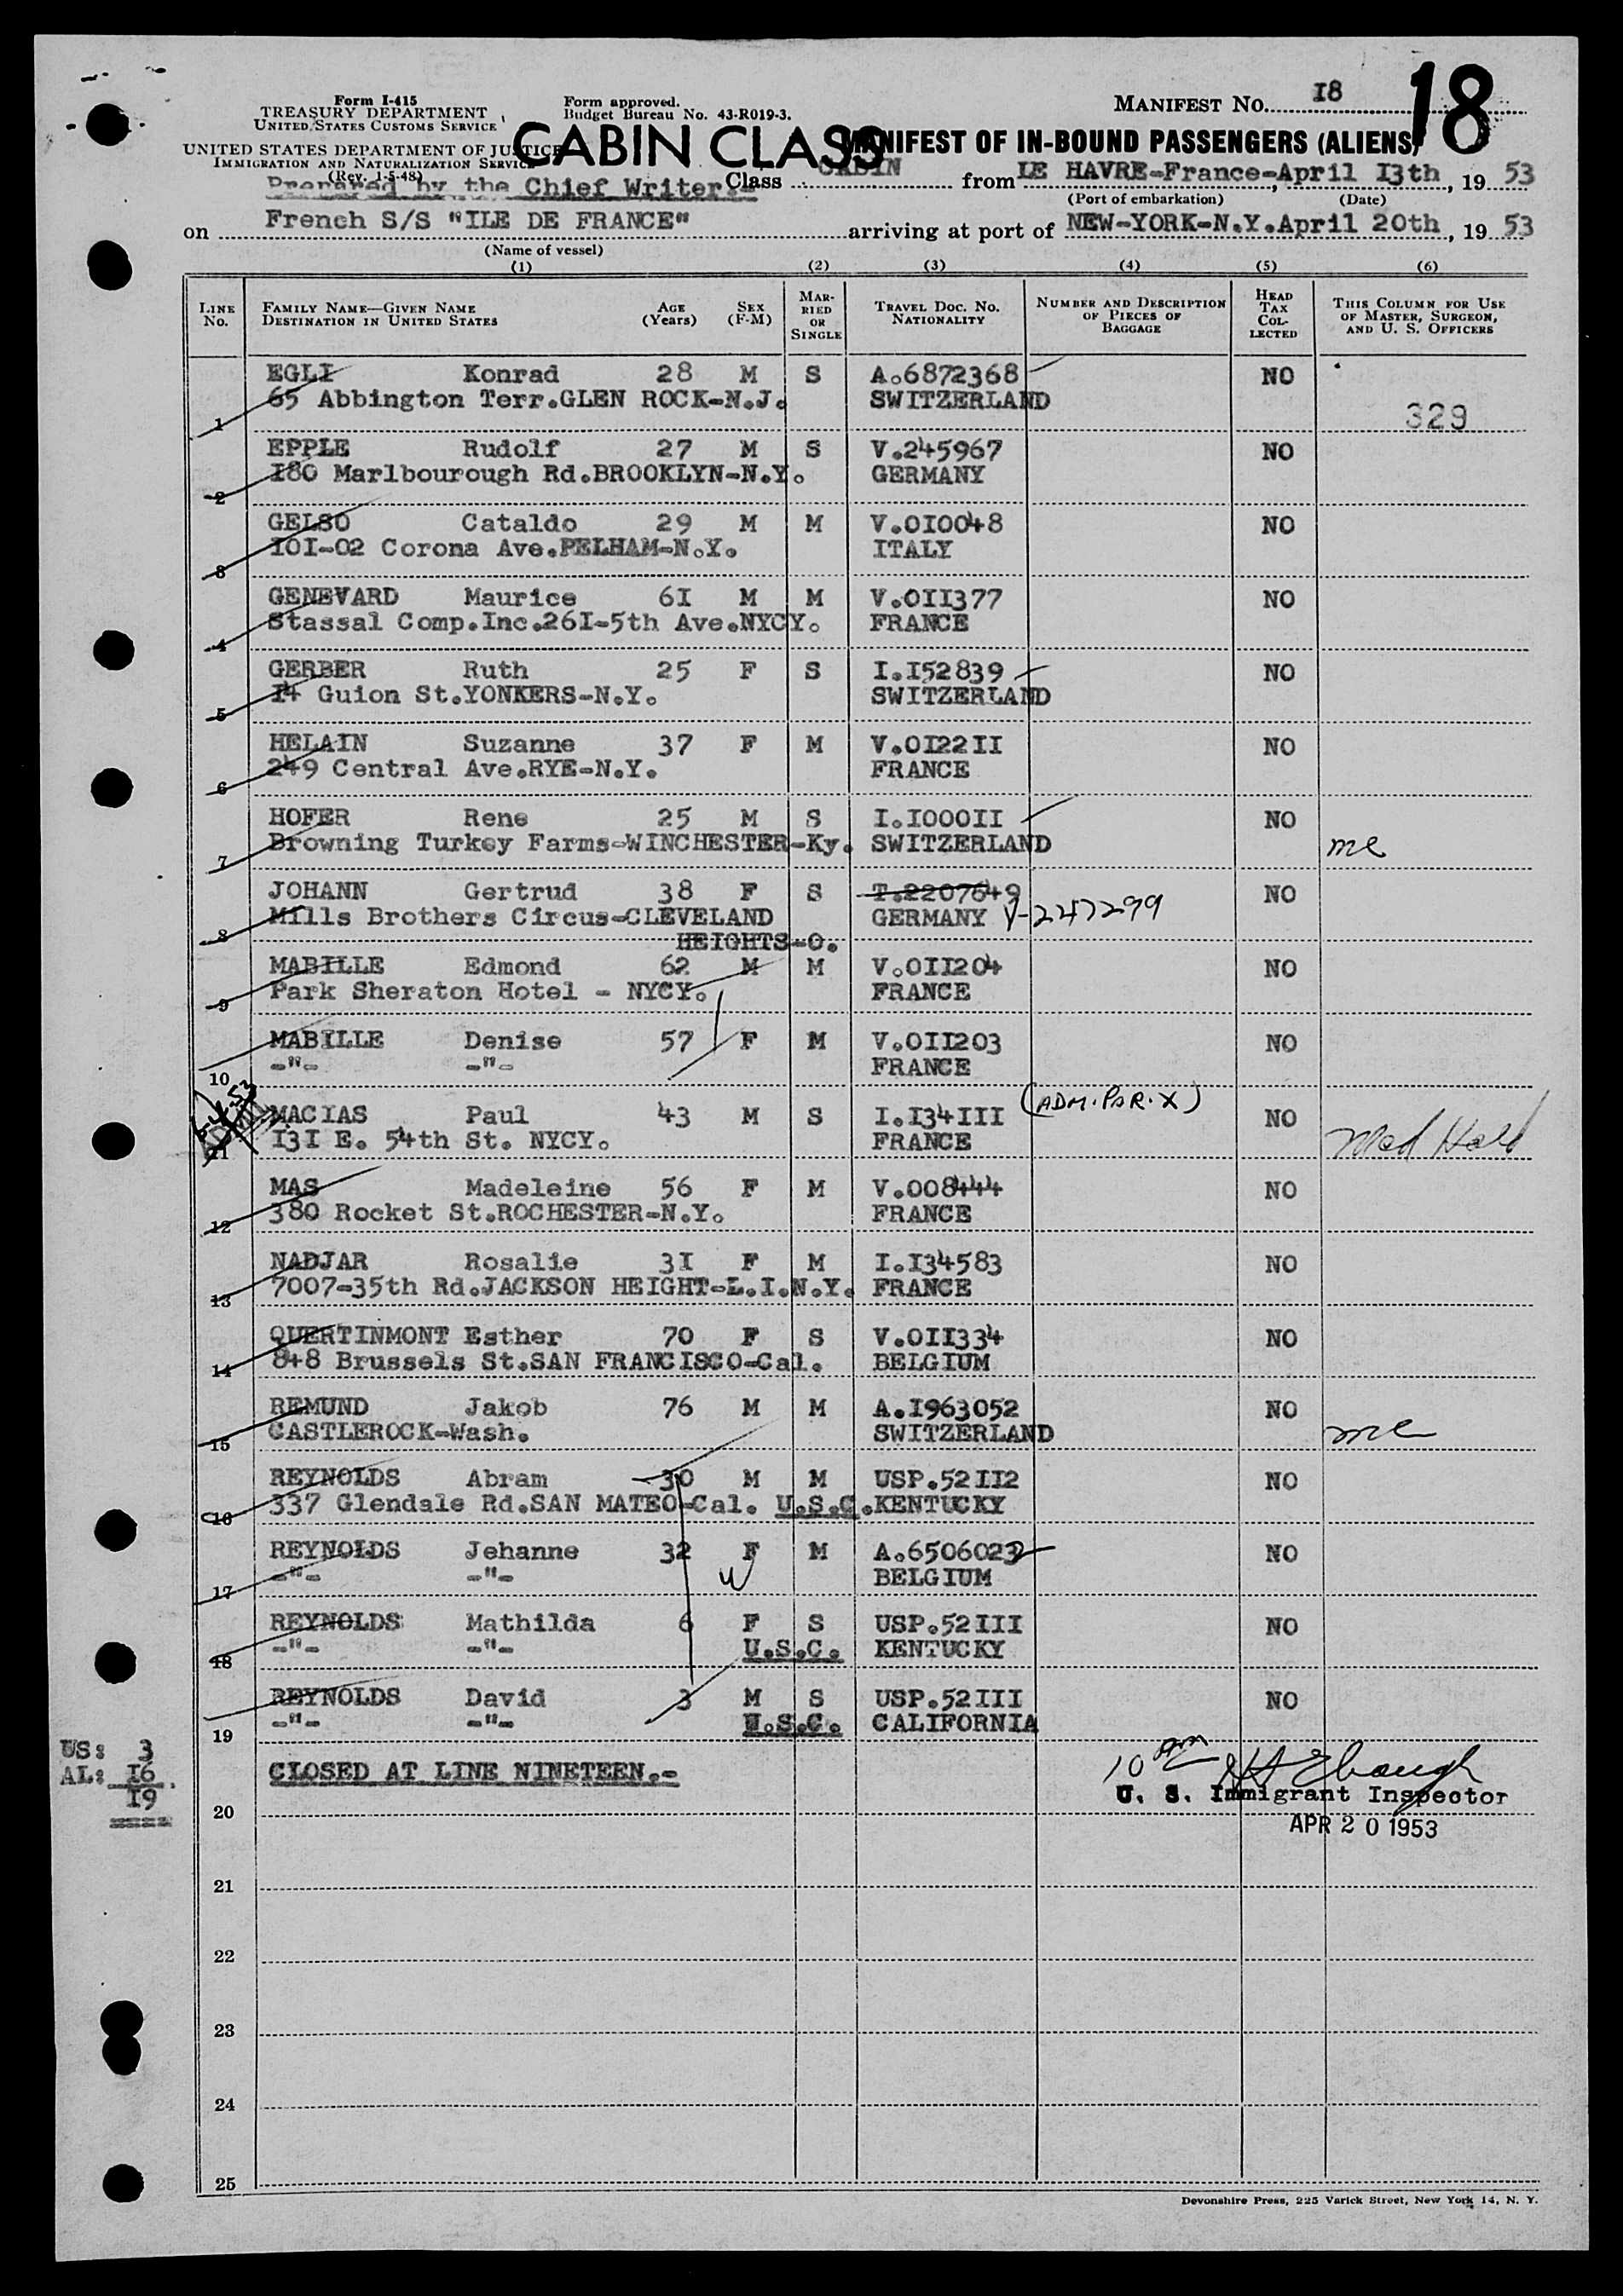 Form I-415
TREASURY DEPARTMENT
UNITED STATES CUSTOMS SERVICE
UNITED STATES DEPARTMENT OF JUSTICE
IMMIGRATION AND NATURALIZATION SERVICE
(Rev. 1-5-48)
Form approved.
Budget Bureau No. 43-R019-3.
MANIFEST No. 18
18
CABIN CLASS
MANIFEST OF IN-BOUND PASSENGERS (ALIENS)
Prepared by the Chief Writer.- Class CABIN from LE HAVRE-France-April 13th, 19 53
(Port of embarkation) (Date)
on French S/S "ILE DE FRANCE" arriving at port of NEW-YORK-N.Y.April 20th, 19 53
(Name of vessel)
(1) (2) (3) (4) (5) (6)
LINE No. FAMILY NAME—GIVEN NAME DESTINATION IN UNITED STATES AGE (Years) SEX (F-M) MARRIED OR SINGLE TRAVEL DOC. NO. NATIONALITY NUMBER AND DESCRIPTION OF PIECES OF BAGGAGE HEAD TAX COLLECTED THIS COLUMN FOR USE OF MASTER, SURGEON, AND U. S. OFFICERS
EGLI Konrad 28 M S A.6872368 NO
1 65 Abbington Terr.GLEN ROCK-N.J. SWITZERLAND 329
EPPLE Rudolf 27 M S V.245967 NO
2 180 Marlbourough Rd.BROOKLYN-N.Y. GERMANY
GELSO Cataldo 29 M M V.010048 NO
3 101-02 Corona Ave.PELHAM-N.Y. ITALY
GENEVARD Maurice 61 M M V.011377 NO
4 Stassal Comp.Inc.261-5th Ave.NYCY. FRANCE
GERBER Ruth 25 F S I.152839 NO
5 14 Guion St.YONKERS-N.Y. SWITZERLAND
HELAIN Suzanne 37 F M V.012211 NO
6 249 Central Ave.RYE-N.Y. FRANCE
HOFER Rene 25 M S I.100011 NO
7 Browning Turkey Farms-WINCHESTER-Ky. SWITZERLAND me
JOHANN Gertrud 38 F S T.2207649 NO
8 Mills Brothers Circus-CLEVELAND GERMANY V-247299
HEIGHTS-O.
MABILLE Edmond 62 M M V.011204 NO
9 Park Sheraton Hotel - NYCY. FRANCE
MABILLE Denise 57 F M V.011203 NO
10 -"- -"- FRANCE
MACIAS Paul 43 M S I.134111 (ADM.PAR.X) NO
11 131 E. 54th St. NYCY. FRANCE Med Hold
MAS Madeleine 56 F M V.008444 NO
12 380 Rocket St.ROCHESTER-N.Y. FRANCE
NADJAR Rosalie 31 F M I.134583 NO
13 7007-35th Rd.JACKSON HEIGHT-L.I.N.Y. FRANCE
QUERTINMONT Esther 70 F S V.011334 NO
14 848 Brussels St.SAN FRANCISCO-Cal. BELGIUM
REMUND Jakob 76 M M A.1963052 NO
15 CASTLEROCK-Wash. SWITZERLAND me
REYNOLDS Abram 30 M M USP.52112 NO
16 337 Glendale Rd.SAN MATEO-Cal. U.S.C. KENTUCKY
REYNOLDS Jehanne 32 F M A.6506023 NO
17 -"- -"- W BELGIUM
REYNOLDS Mathilda 6 F S USP.52111 NO
18 -"- -"- U.S.C. KENTUCKY
REYNOLDS David 3 M S USP.52111 NO
19 -"- -"- U.S.C. CALIFORNIA
US: 3
AL: 16
19
CLOSED AT LINE NINETEEN.-
10 am
U. S. Immigrant Inspector
APR 20 1953
20
21
22
23
24
25
Devonshire Press, 225 Varick Street, New York 14, N. Y.